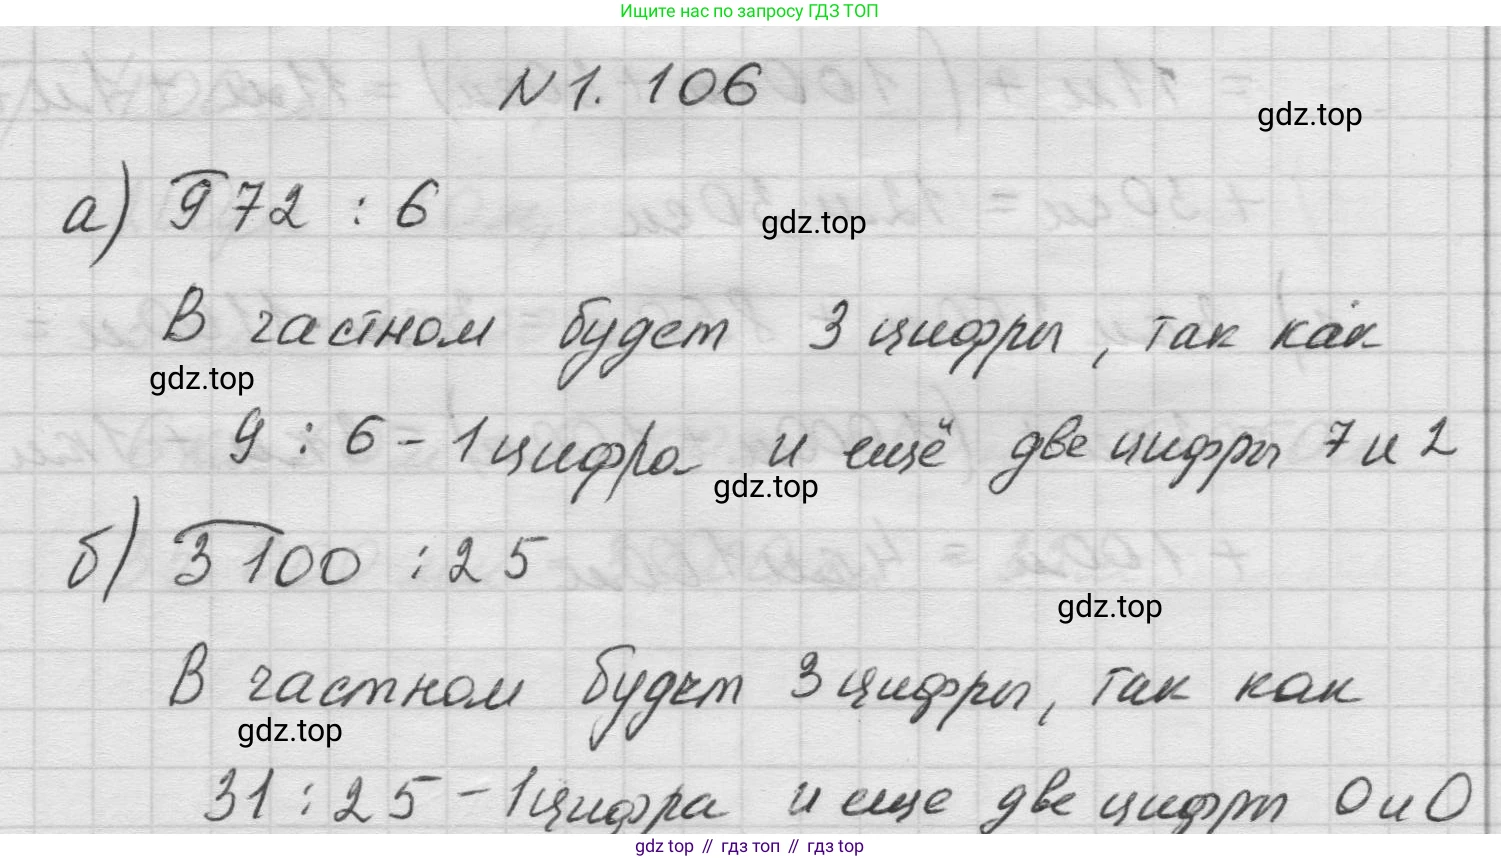 Ищите нас по запросу ГДЗ ТОП
N1. 106
gdz.top
а) 972 : 6
gdz.top
В частном будет 3 цифры, так как
gdz.top
9 : 6 – 1 цифра и ещё две цифры 7 и 2
gdz.top
б) 3100 : 25
gdz.top
В частном будет 3 цифры, так как
gdz.top
31 : 25 – 1 цифра и еще две цифры 0 и 0
gdz top // гдз топ // гдз top